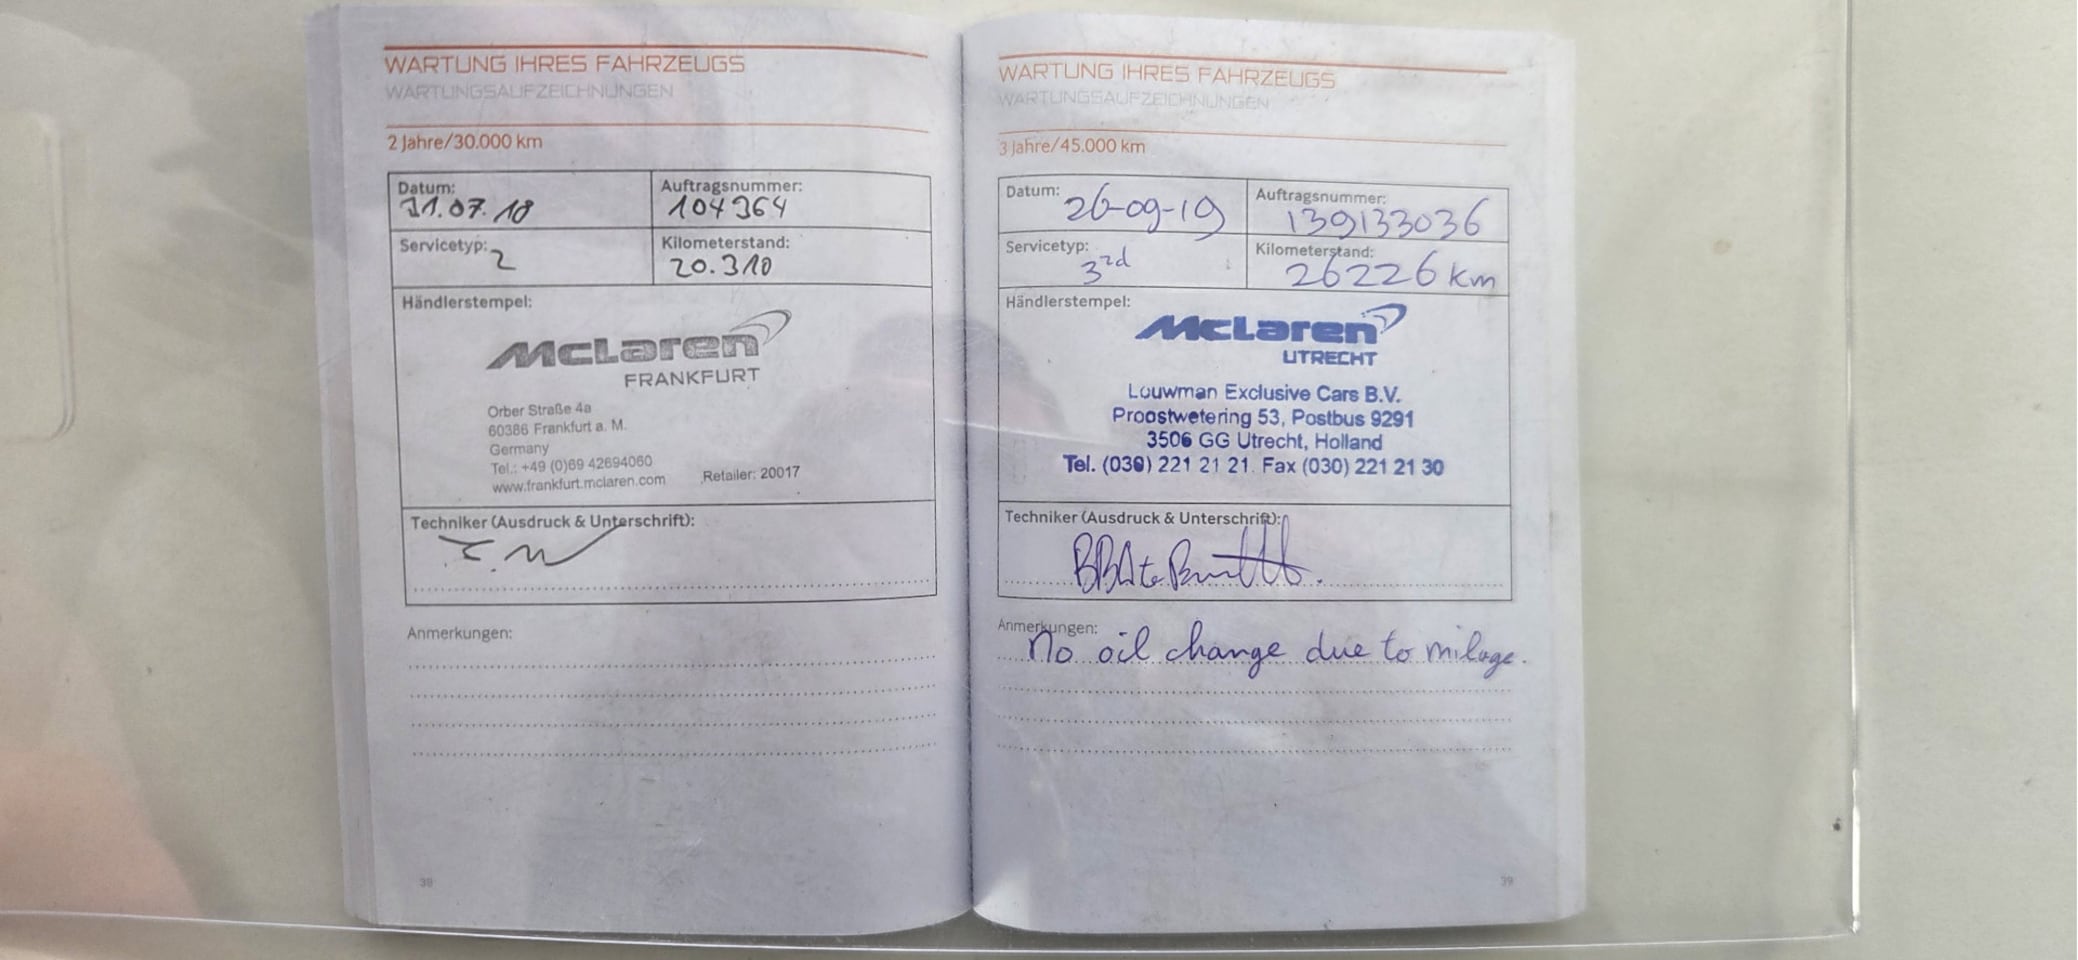 WARTUNG IHRES FAHRZEUGS
WARTUNGSAUFZEICHNUNGEN
2 Jahre/30.000 km
Datum:
31.07.18
Auftragsnummer:
104364
Servicetyp:
2
Kilometerstand:
20.310
Händlerstempel:
McLaren
FRANKFURT
Orber Straße 4a
60386 Frankfurt a. M.
Germany
Tel.: +49 (0)69 42694060
www.frankfurt.mclaren.com
Retailer: 20017
Techniker (Ausdruck & Unterschrift):
Anmerkungen:
38
WARTUNG IHRES FAHRZEUGS
WARTUNGSAUFZEICHNUNGEN
3 Jahre/45.000 km
Datum:
26-09-19
Auftragsnummer:
139133036
Servicetyp:
3rd
Kilometerstand:
26226 km
Händlerstempel:
McLaren
UTRECHT
Louwman Exclusive Cars B.V.
Proostwetering 53, Postbus 9291
3506 GG Utrecht, Holland
Tel. (030) 221 21 21. Fax (030) 221 21 30
Techniker (Ausdruck & Unterschrift):
Anmerkungen:
No oil change due to milage.
39